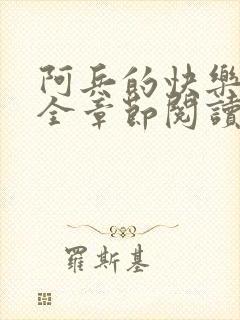 阿兵的快樂
全章節閱讀
羅斯基